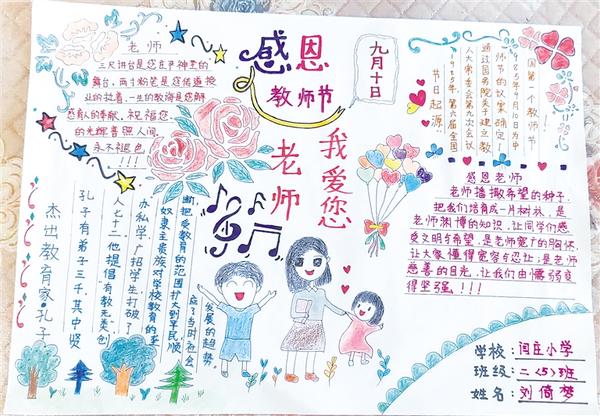 感恩
教师节
九月十日
老师
我爱您
老师
三尺讲台是您
舞台，两寸粉笔是您传道授
业的拉着，一生的教诲是您解
惑育人的奉献，祝福您
的光辉普照人间，
永不褪色
!!!
节日起源：
1985年，第六届全国
人大常委会第九次会议
通过国务院关于建立教
师节的议案确定了
1985年9月10日为中
国第一个教师节
感恩老师
老师播撒希望的种子，
把我们培育成一片树林，是
老师渊博的知识，让同学们感
受文明与希望，是老师宽广的胸怀，
让大家懂得宽容与忍让；是老师
慈善的目光，让我们由懦弱变
得坚强!!!
杰出教育家孔子
孔子有弟子三千，其中贤
人七十二他提倡有教无类创
办私学，广招学生打破了
奴隶主贵族对学校教育的垄
断，把受教育的范围扩大到平民顺
应了当时社会
发展的趋势。
学校：闫庄小学
班级：二〈5〉班
姓名：刘倚梦